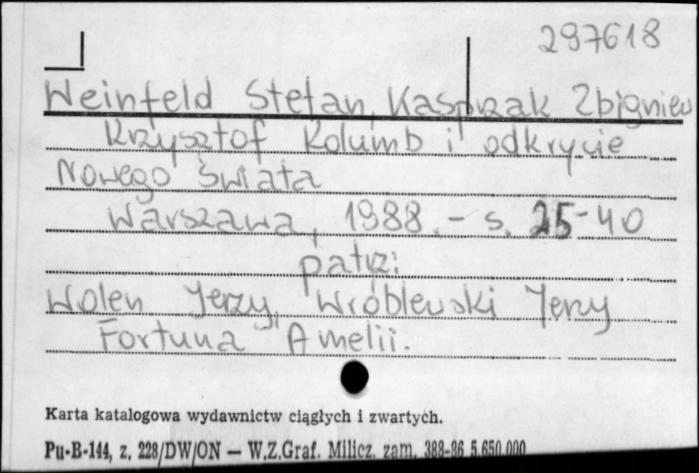 297618
Weinfeld Stefan, Kasprzak Zbigniew
Krzysztof Kolumb i odkrycie
Nowego Świata
Warszawa, 1988. – s. 25-40
patrz:
Wolen Jerzy, Wróblewski Jerzy
Fortuna Amelii.
Karta katalogowa wydawnictw ciągłych i zwartych.
Pu-B-144, z. 228/DW/ON — W.Z.Graf. Milicz. zam. 388-86 5.650.000